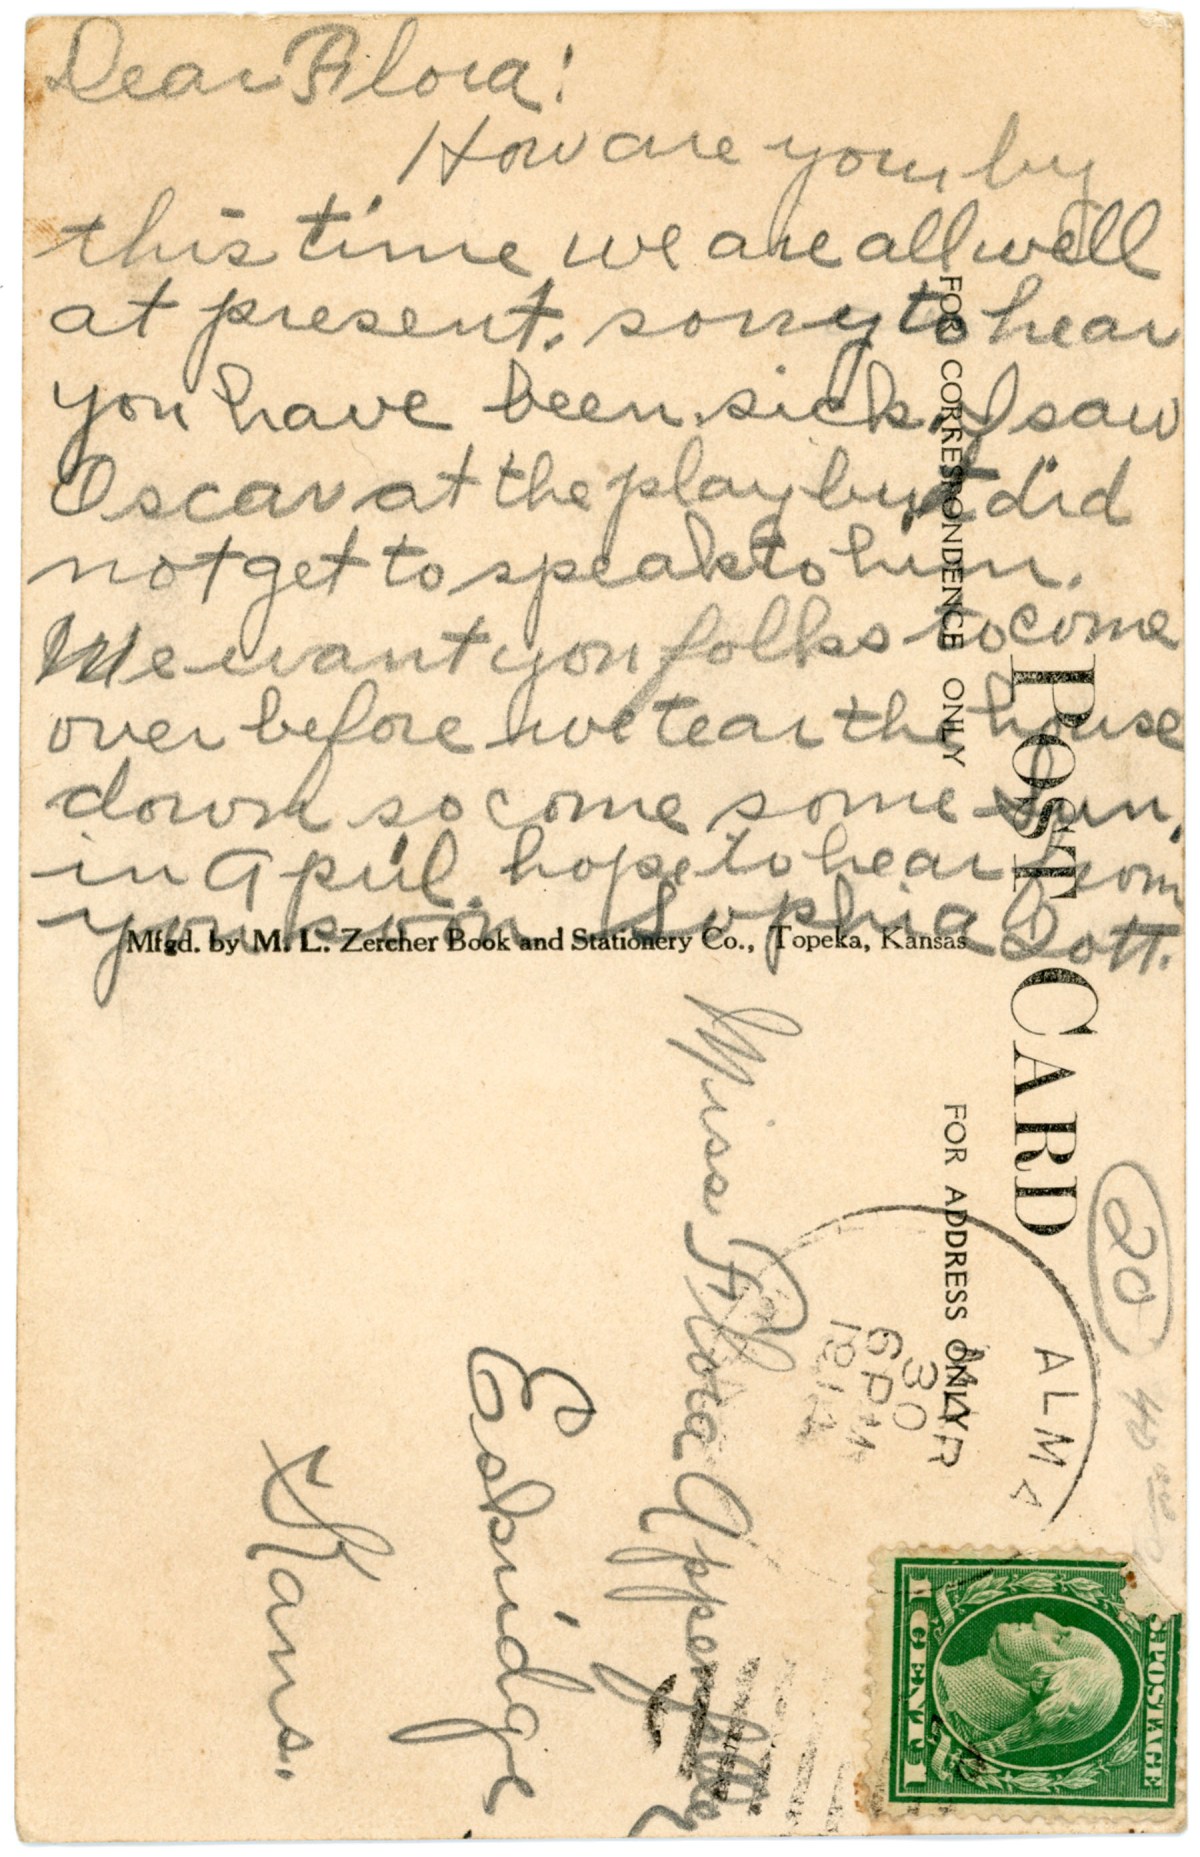 Dear Flora!
How are you, by
this time we are all well
at present. sorry to hear
you have been sick, I saw
Oscar at the play but did
not get to speak to him.
We want you folks to come
over before we tear the house
down so come some Sun,
in April. hope to hear from
you soon Sophia Dott.
Mfgd. by M. L. Zercher Book and Stationery Co., Topeka, Kansas
FOR CORRESPONDENCE ONLY
POST CARD
FOR ADDRESS ONLY
20
ALMA
MAR
30
6 PM
Miss Flora
Eskridge
Kans.
U.S. POSTAGE
1 CENT 1